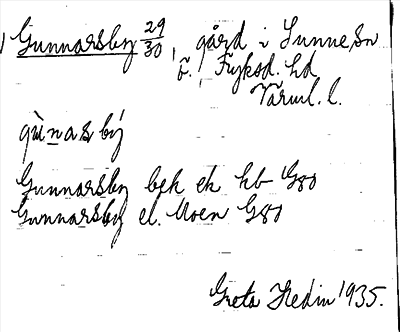 Gunnarsby 29/30, gård i Sunne sn
Ö. Fryksd. hd
Värml. l.
gùnasbý
Gunnarsby bek ek kb G80
Gunnarsby el. Moen G80
Greta Hedin 1935.